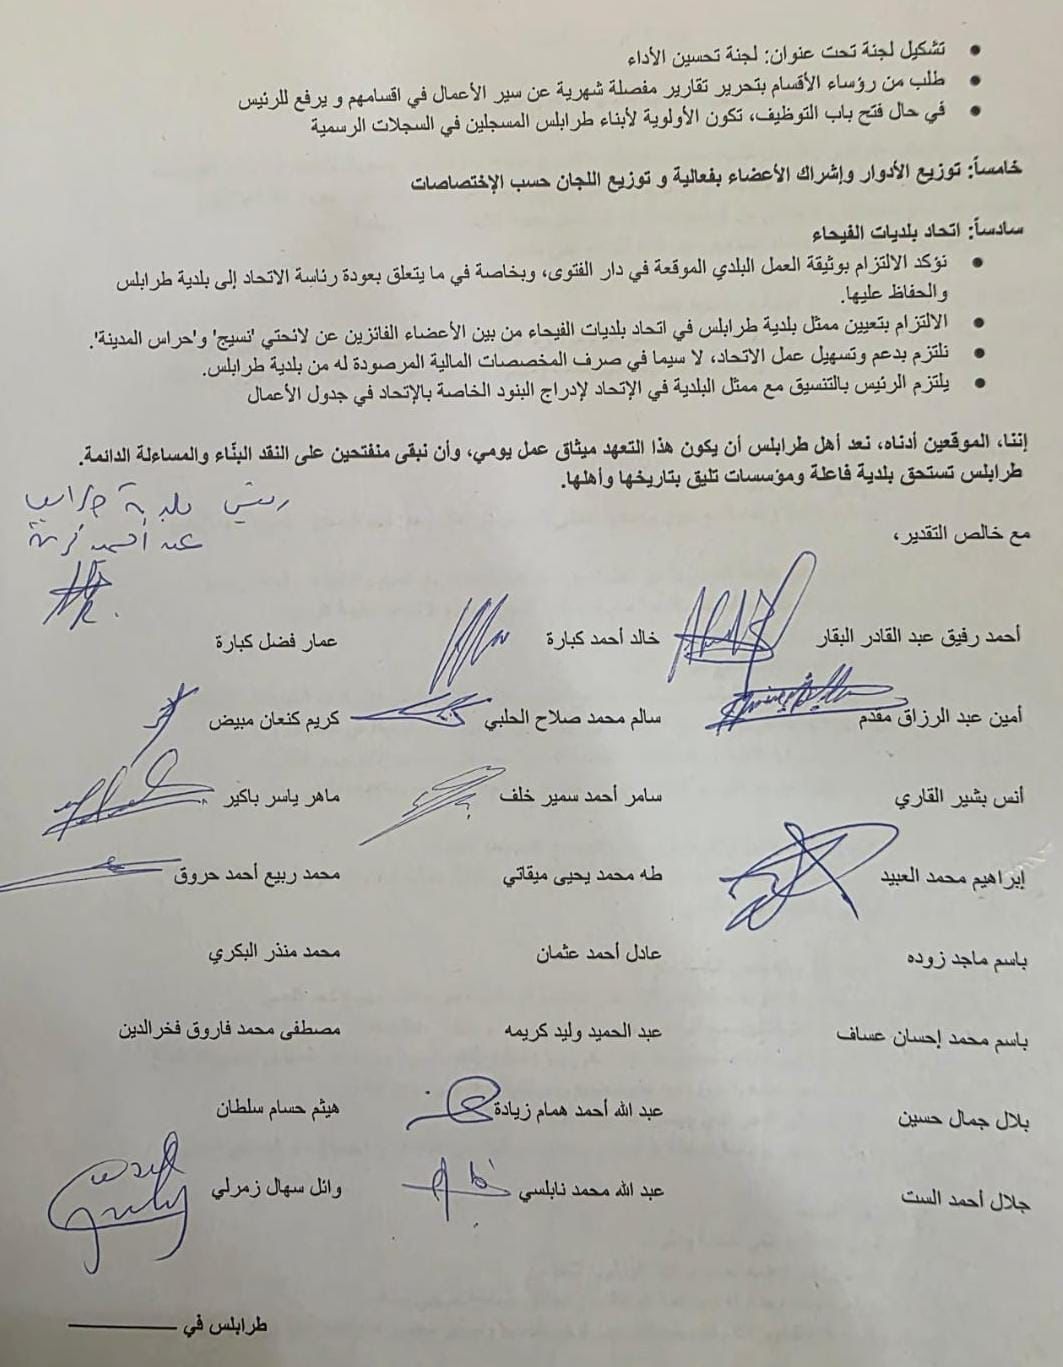 • تشكيل لجنة تحت عنوان: لجنة تحسين الأداء
• طلب من رؤساء الأقسام بتحرير تقارير مفصلة شهرية عن سير الأعمال في اقسامهم و يرفع للرئيس
• في حال فتح باب التوظيف، تكون الأولوية لأبناء طرابلس المسجلين في السجلات الرسمية
خامساً: توزيع الأدوار وإشراك الأعضاء بفعالية و توزيع اللجان حسب الإختصاصات
سادساً: اتحاد بلديات الفيحاء
• نؤكد الالتزام بوثيقة العمل البلدي الموقعة في دار الفتوى، وبخاصة في ما يتعلق بعودة رئاسة الاتحاد إلى بلدية طرابلس
والحفاظ عليها.
• الالتزام بتعيين ممثل بلدية طرابلس في اتحاد بلديات الفيحاء من بين الأعضاء الفائزين عن لائحتي 'نسيج' و'حراس المدينة'.
• نلتزم بدعم وتسهيل عمل الاتحاد، لا سيما في صرف المخصصات المالية المرصودة له من بلدية طرابلس.
• يلتزم الرئيس بالتنسيق مع ممثل البلدية في الإتحاد لإدراج البنود الخاصة بالإتحاد في جدول الأعمال
إننا، الموقعين أدناه، نعد أهل طرابلس أن يكون هذا التعهد ميثاق عمل يومي، وأن نبقى منفتحين على النقد البنّاء والمساءلة الدائمة.
طرابلس تستحق بلدية فاعلة ومؤسسات تليق بتاريخها وأهلها.
رئيس بلدية طرابلس
مع خالص التقدير،
أحمد رفيق عبد القادر البقار خالد أحمد كبارة عمار فضل كبارة
أمين عبد الرزاق مقدم سالم محمد صلاح الحلبي كريم كنعان مبيض
أنس بشير القاري سامر أحمد سمير خلف ماهر ياسر باكير
إبراهيم محمد العبيد طه محمد يحيى ميقاتي محمد ربيع أحمد حروق
باسم ماجد زوده عادل أحمد عثمان محمد منذر البكري
باسم محمد إحسان عساف عبد الحميد وليد كريمه مصطفى محمد فاروق فخرالدين
بلال جمال حسين عبد الله أحمد همام زيادة هيثم حسام سلطان
جلال أحمد الست عبد الله محمد نابلسي وائل سهال زمرلي
طرابلس في